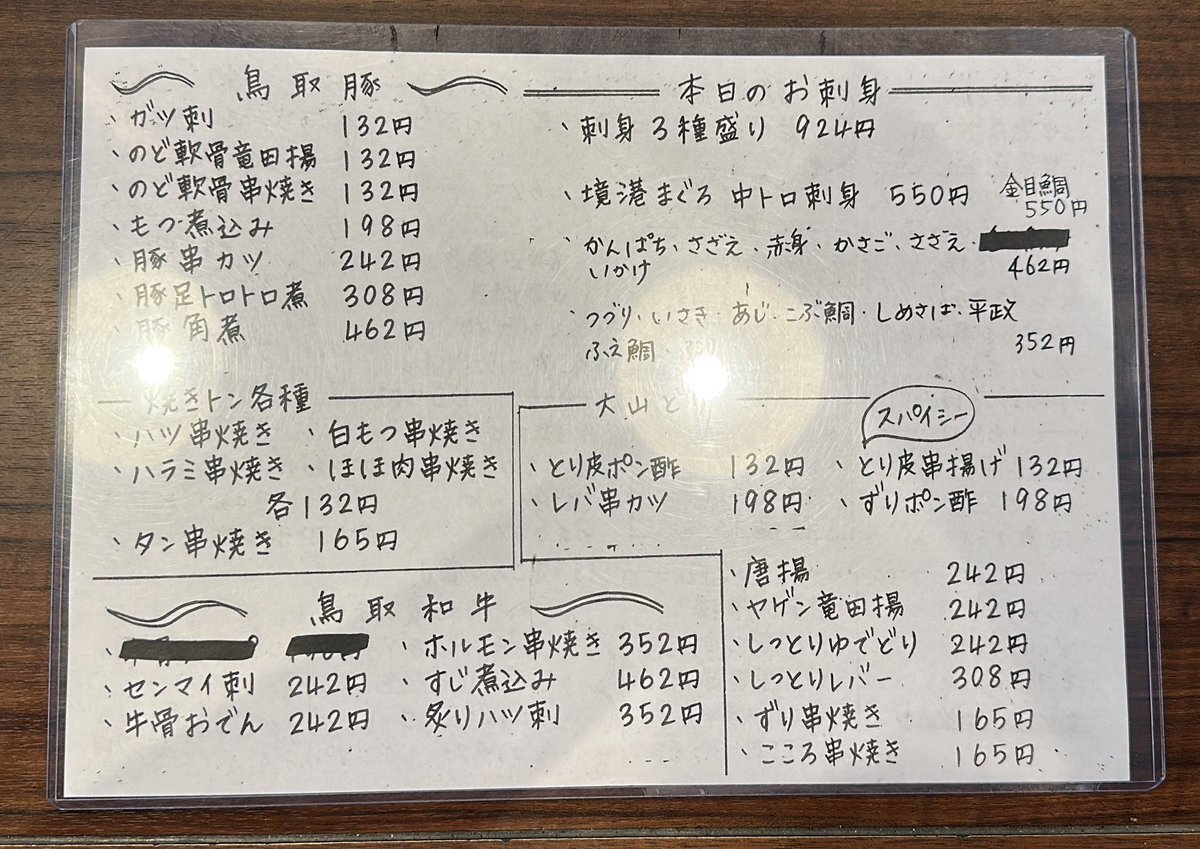 鳥取豚
・ガツ刺 132円
・のど軟骨竜田揚 132円
・のど軟骨串焼き 132円
・もつ煮込み 198円
・豚串カツ 242円
・豚足トロトロ煮 308円
・豚角煮 462円
本日のお刺身
・刺身3種盛り 924円
・境港まぐろ 中トロ刺身 550円
金目鯛
550円
・かんぱち・さざえ・赤身・かさご・さざえ・
いかげ
462円
・つづり・いさき・あじ・こぶ鯛・しめさば・平政
ふえ鯛
352円
焼きトン各種
・ハツ串焼き ・白もつ串焼き
・ハラミ串焼き ・ほほ肉串焼き
各132円
・タン串焼き 165円
大山と
スパイシー
・とり皮ポン酢 132円 ・とり皮串揚げ 132円
・レバ串カツ 198円 ・ずりポン酢 198円
・唐揚 242円
・ヤゲン竜田揚 242円
・しっとりゆでどり 242円
・しっとりレバー 308円
・ずり串焼き 165円
・こころ串焼き 165円
鳥取和牛
・ホルモン串焼き 352円
・センマイ刺 242円 ・すじ煮込み 462円
・牛骨おでん 242円 ・炙りハツ刺 352円